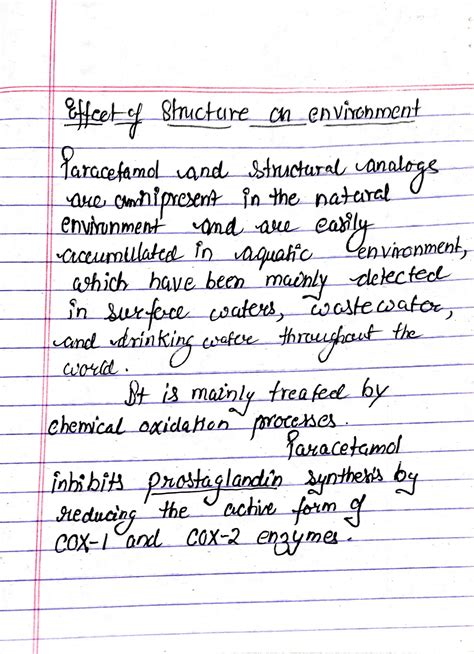 Effect of Structure on environment
Paracetamol and structural analogs
are omnipresent in the natural
environment and are easily
accumulated in aquatic environment,
which have been mainly detected
in surface waters, wastewater,
and drinking water throughout the
world.
It is mainly treated by
chemical oxidation processes.
Paracetamol
inhibits prostaglandin synthesis by
reducing the active form of
COX-1 and COX-2 enzymes.